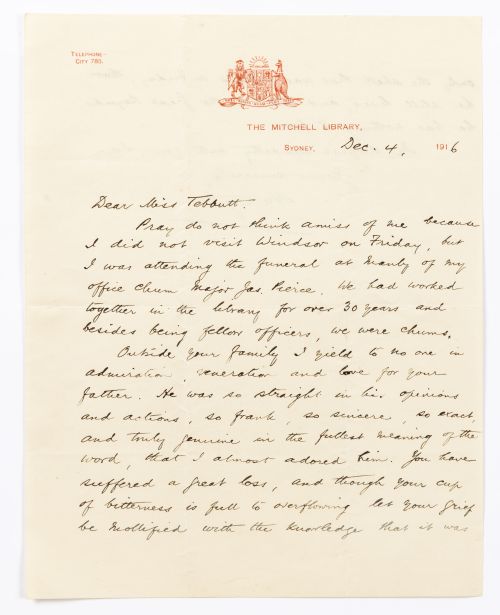 TELEPHONE—
CITY 785.
THE MITCHELL LIBRARY,
SYDNEY, Dec. 4, 1916
Dear Miss Tebbutt.
Pray do not think amiss of me because
I did not visit Windsor on Friday, but
I was attending the funeral at Manly of my
office chum Major Jas. Pierce. We had worked
together in the library for over 30 years and
besides being fellow officers, we were chums.
Outside your family I yield to no one in
admiration, veneration and love for your
father. He was so straight in his opinions
and actions, so frank, so sincere, so exact,
and truly genuine in the fullest meaning of the
word, that I almost adored him. You have
suffered a great loss, and though your cup
of bitterness is full to overflowing let your grief
be mollified with the knowledge that it was